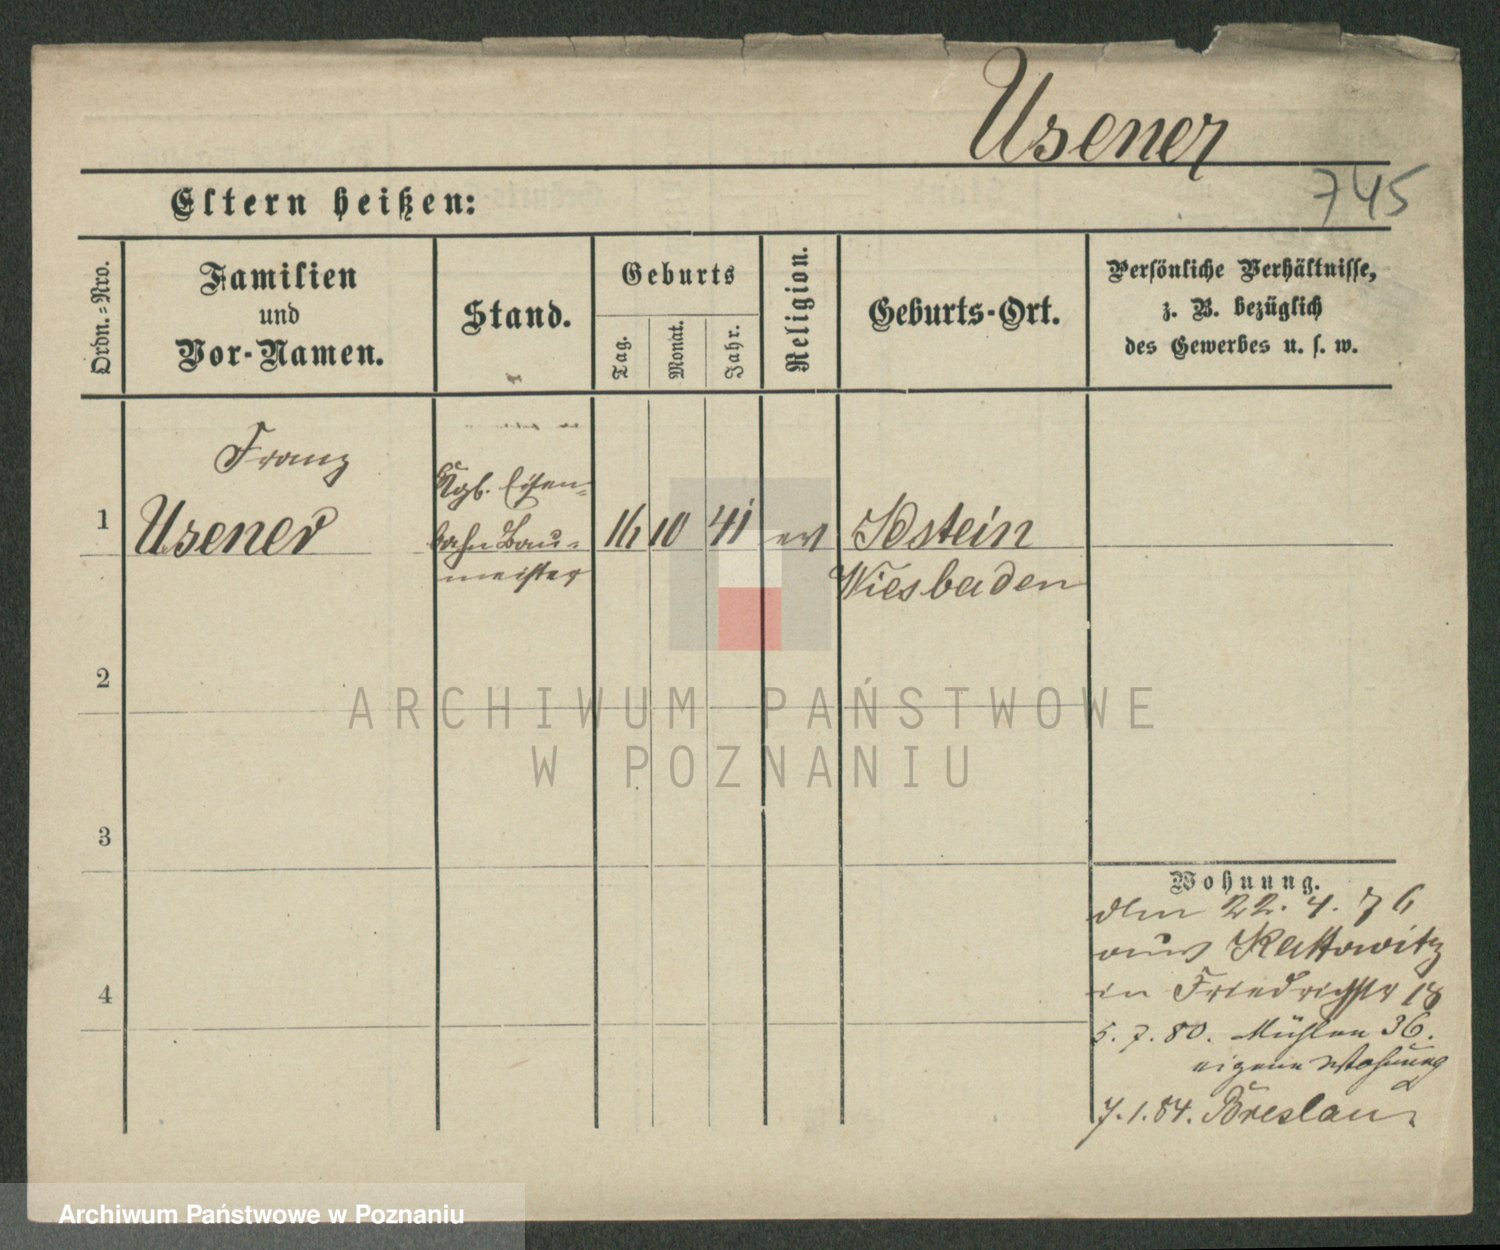 Usener
745
Eltern heißen:
Ordn.-Nro.
Familien
und
Vor-Namen.
Stand.
Geburts
Tag.
Monat.
Jahr.
Religion.
Geburts-Ort.
Persönliche Verhältnisse,
z. B. bezüglich
des Gewerbes u. s. w.
1
Franz
Usener
Kgl. Eisen-
bahn Bau-
meister
16
10
41
ev
Idstein
Wiesbaden
2
3
4
Wohnung.
den 22. 4. 76
aus Kattowitz
in Friedrichstr 18
5. 7. 80. Mühlen 36.
eigene Wohnung
7. 1. 84. Breslau
ARCHIWUM PAŃSTWOWE
W POZNANIU
Archiwum Państwowe w Poznaniu